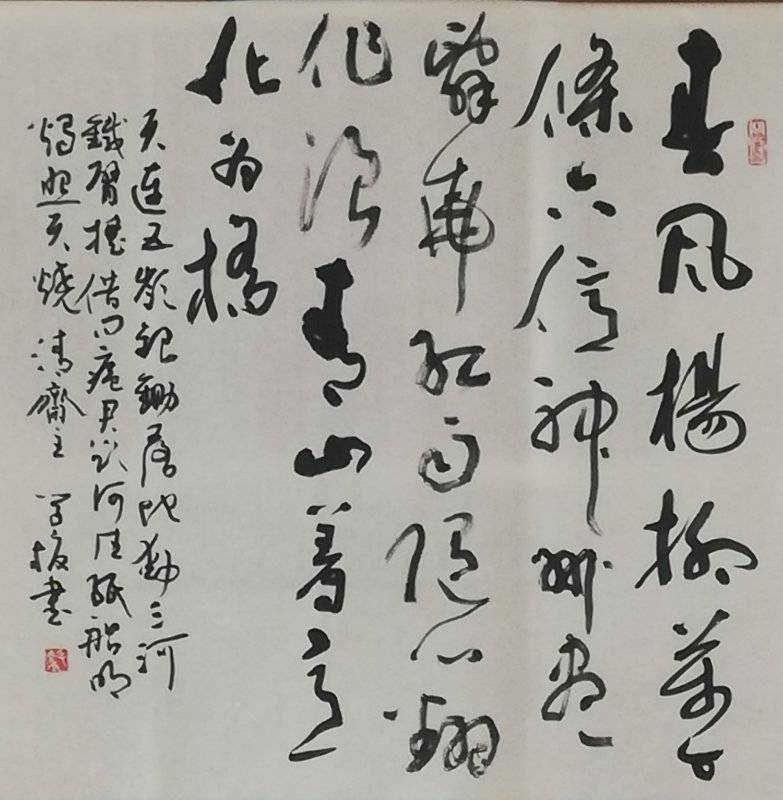 春风楊柳萬千
條六億神州盡
舜堯红雨隨心翻
作浪青山着意
化为橋
天連五嶺銀鋤落地動三河
鐵臂摇借问瘟君欲何往紙船明
燭照天燒 清齋主 書